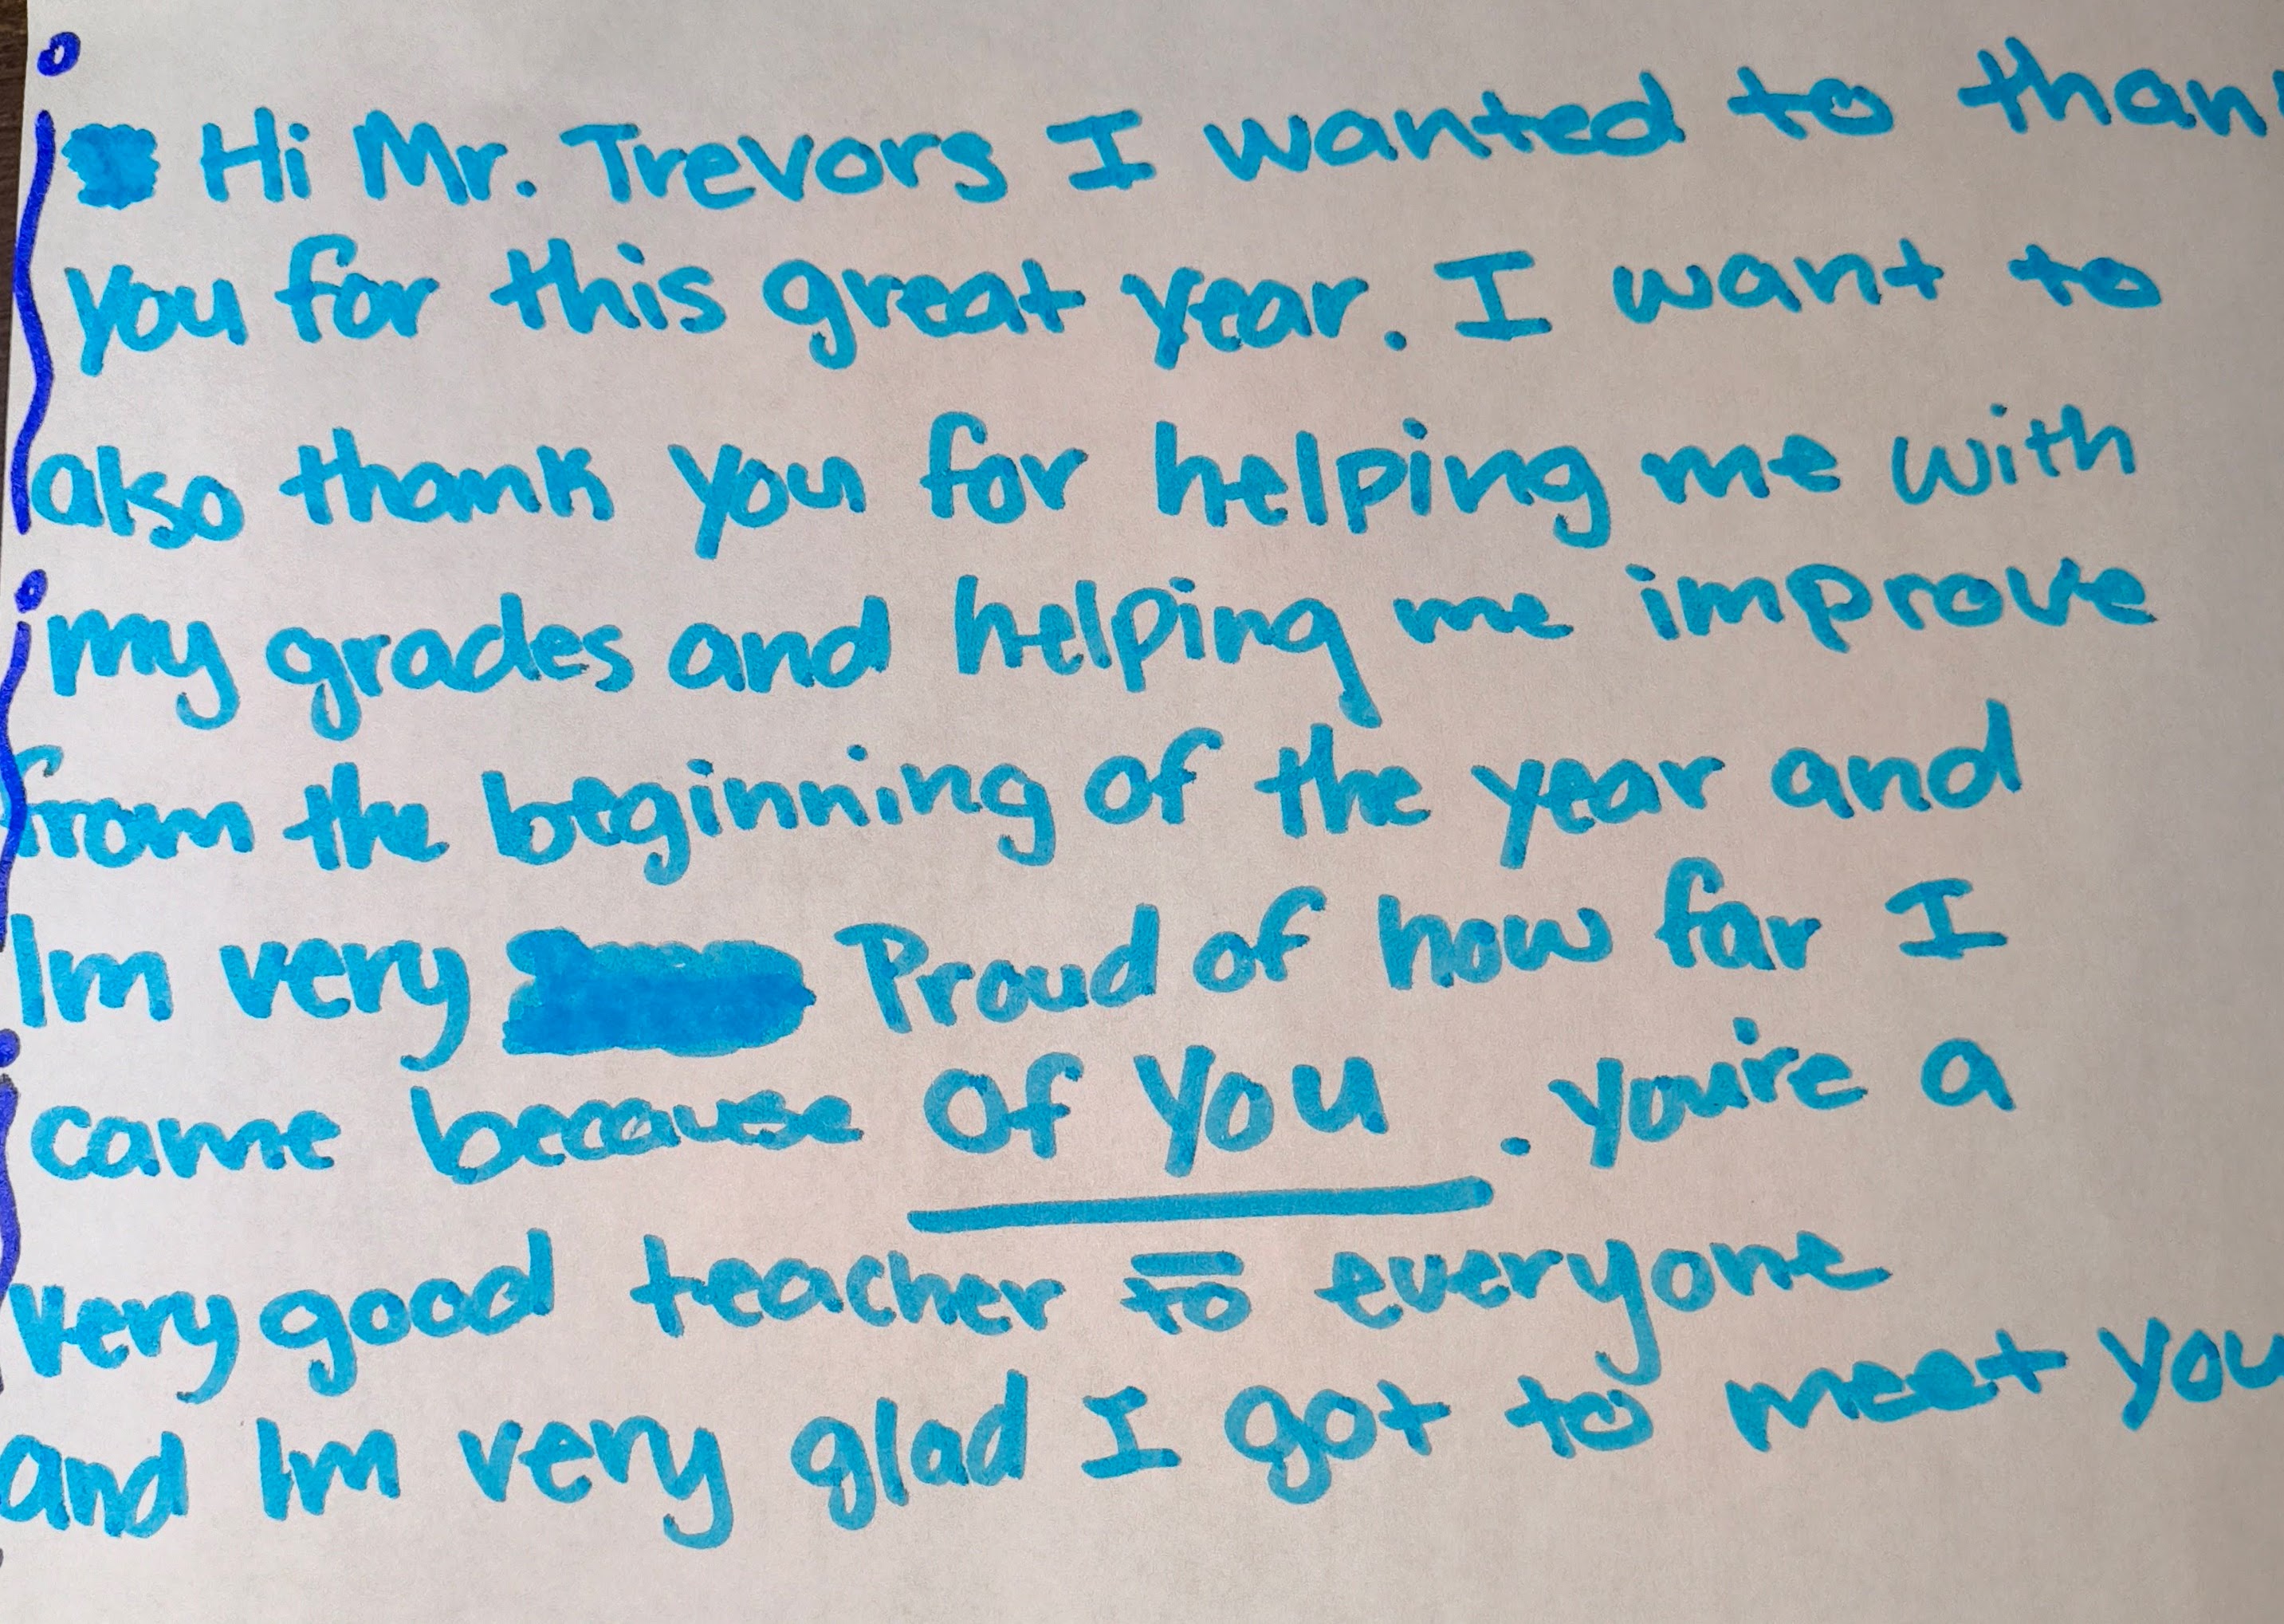 Hi Mr. Trevors I wanted to thank
you for this great year. I want to
also thank you for helping me with
my grades and helping me improve
from the beginning of the year and
Im very Proud of how far I
came because of you. you're a
very good teacher to everyone
and Im very glad I got to meet you